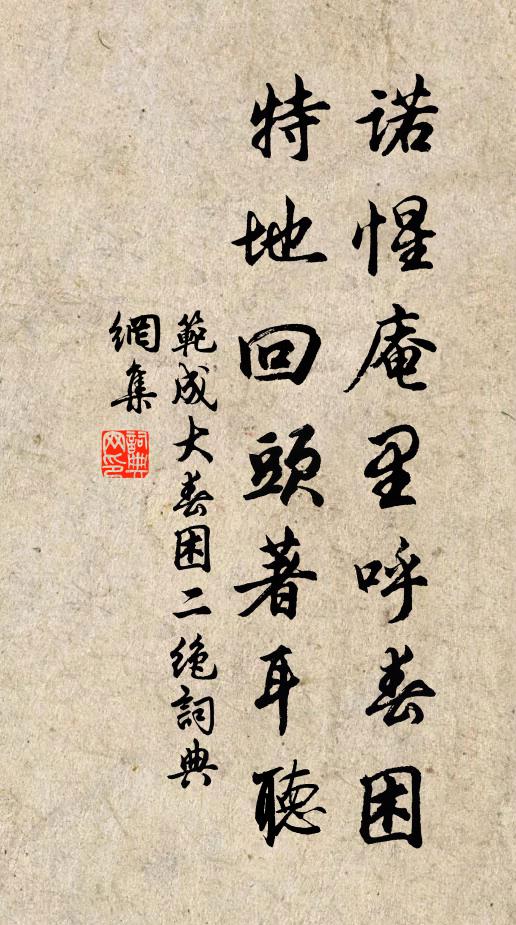 諾惺庵里呼春困
特地回頭著耳聽
範成大春困二絶詞典
網集
詞典网印